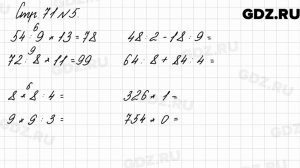 Стр. 71 № 5.
GDZ.RU
6
54 : 9 * 13 = 78
48 : 2 - 18 : 9 =
9
72 : 8 * 11 = 99
64 : 8 + 84 : 4 =
6
8 * 8 : 4 =
326 * 1 =
9 * 9 : 3 =
754 * 0 =
GDZ.RU